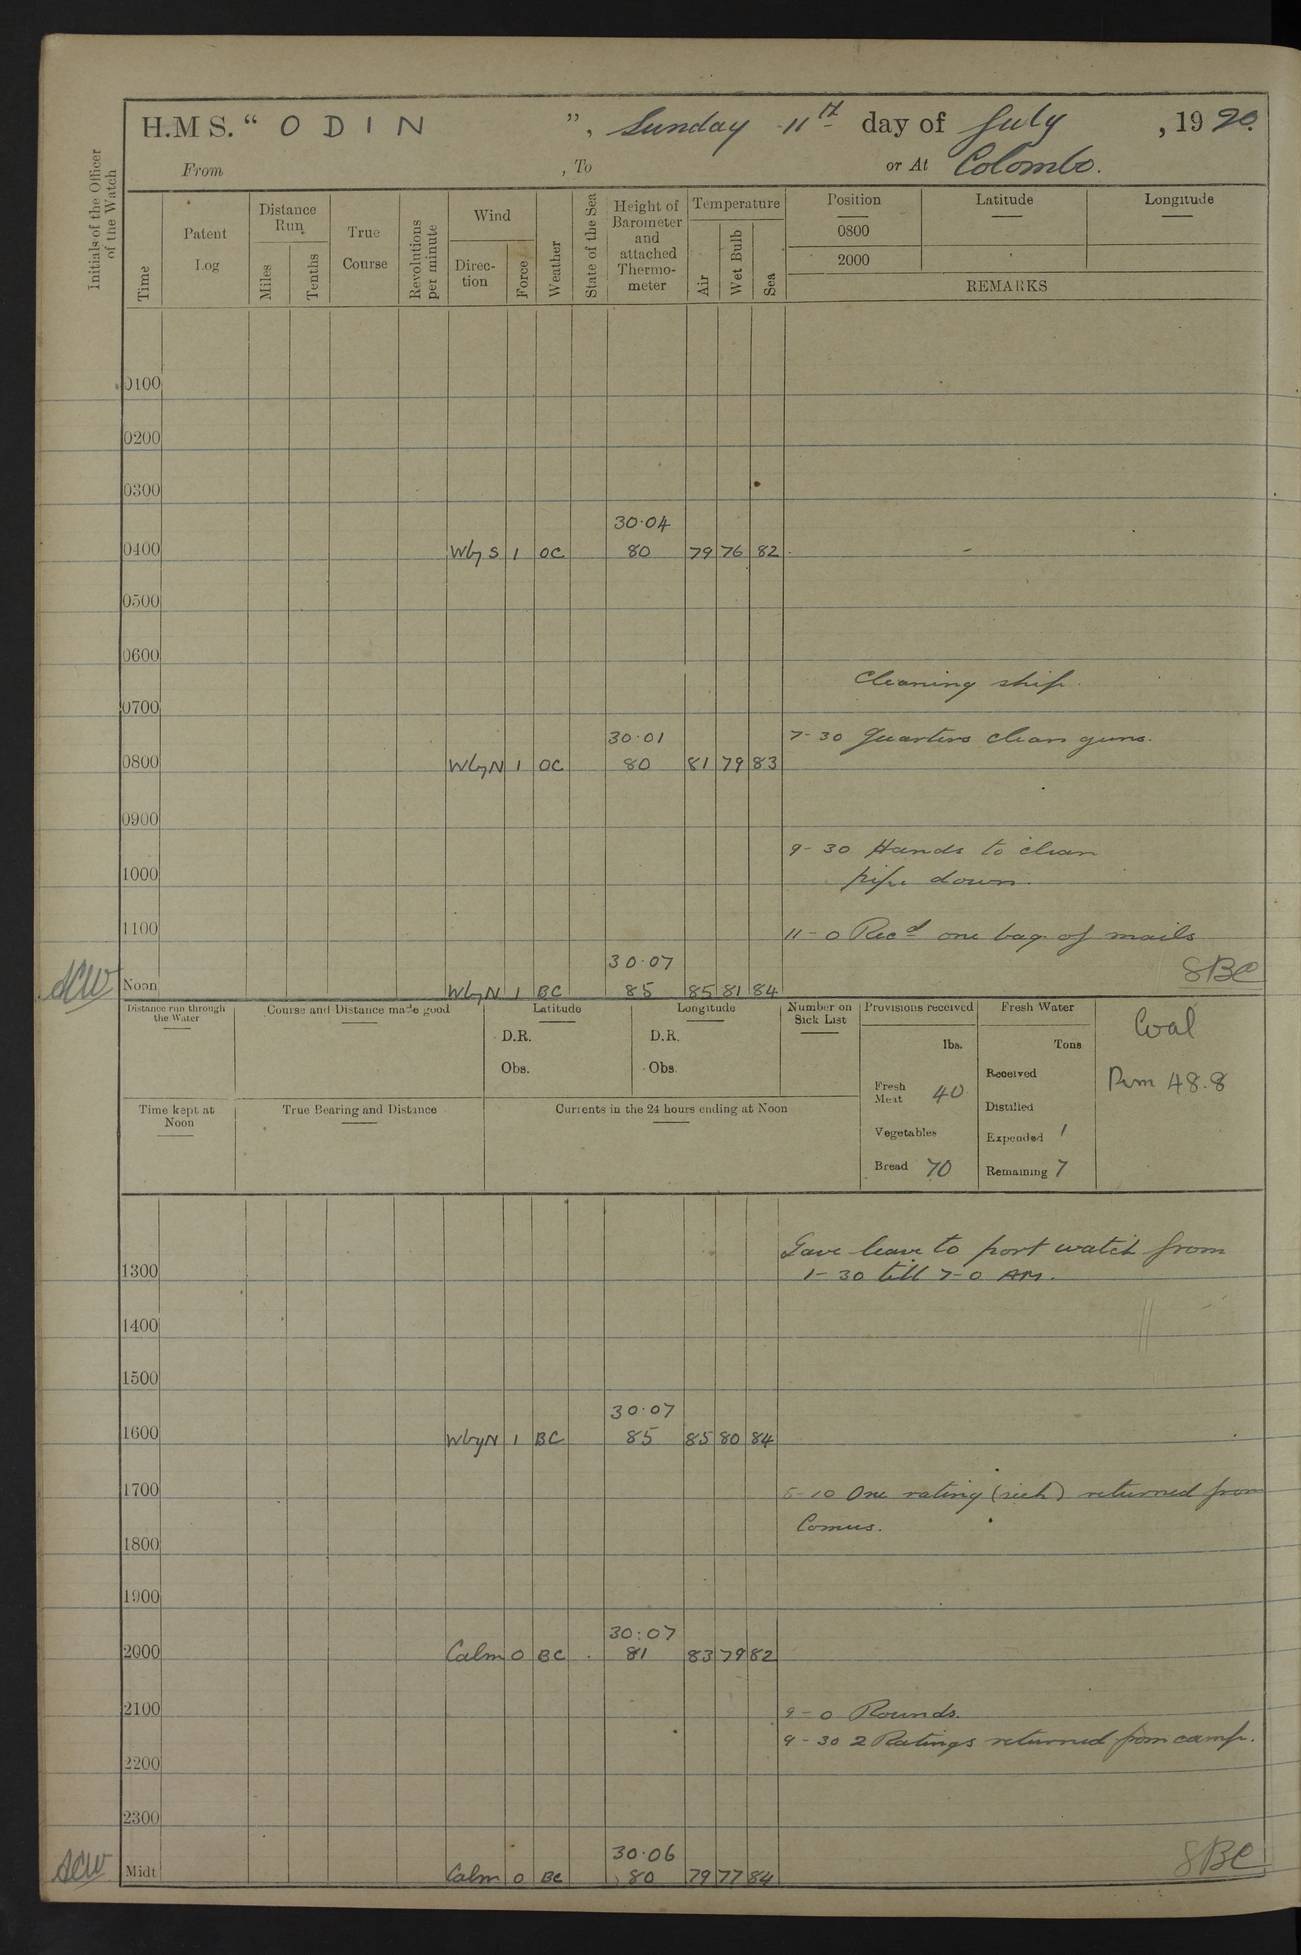 H.M S. “ ODIN ”, Sunday 11th day of July , 1920.
From , To or At Colombo.
Initials of the Officer of the Watch
Time
Patent Log
Distance Run
Miles
Tenths
True Course
Revolutions per minute
Wind
Direc- tion
Force
Weather
State of the Sea
Height of Barometer and attached Thermo- meter
Temperature
Air
Wet Bulb
Sea
Position Latitude Longitude
0800
2000
REMARKS
0100
0200
0300
30·04
0400 W by S 1 OC 80 79 76 82 -
0500
0600
Cleaning ship.
0700
30·01 7-30 Quarters clean guns.
0800 W by N 1 OC 80 81 79 83
0900
9-30 Hands to clean
1000 pipe down.
1100 11-0 Recd one bag of mails
30·07
Noon W by N 1 BC 85 85 81 84 SBC
Distance run through the Water
Course and Distance made good
Latitude
D.R.
Obs.
Longitude
D.R.
Obs.
Number on Sick List
Provisions received
lbs.
Fresh Meat 40
Vegetables
Bread 70
Fresh Water
Tons
Received
Distilled
Expended 1
Remaining 7
Coal
Rem 48.8
Time kept at Noon
True Bearing and Distance
Currents in the 24 hours ending at Noon
Gave leave to port watch from
1300 1-30 till 7-0 AM.
1400
1500
30·07
1600 W by N 1 BC 85 85 80 84
1700 5-10 One rating (sick) returned from
Comus.
1800
1900
30:07
2000 Calm 0 BC 81 83 79 82
2100 9-0 Rounds.
9-30 2 Ratings returned from camp.
2200
2300
30·06
Midt Calm 0 BC 80 79 77 84 SBC